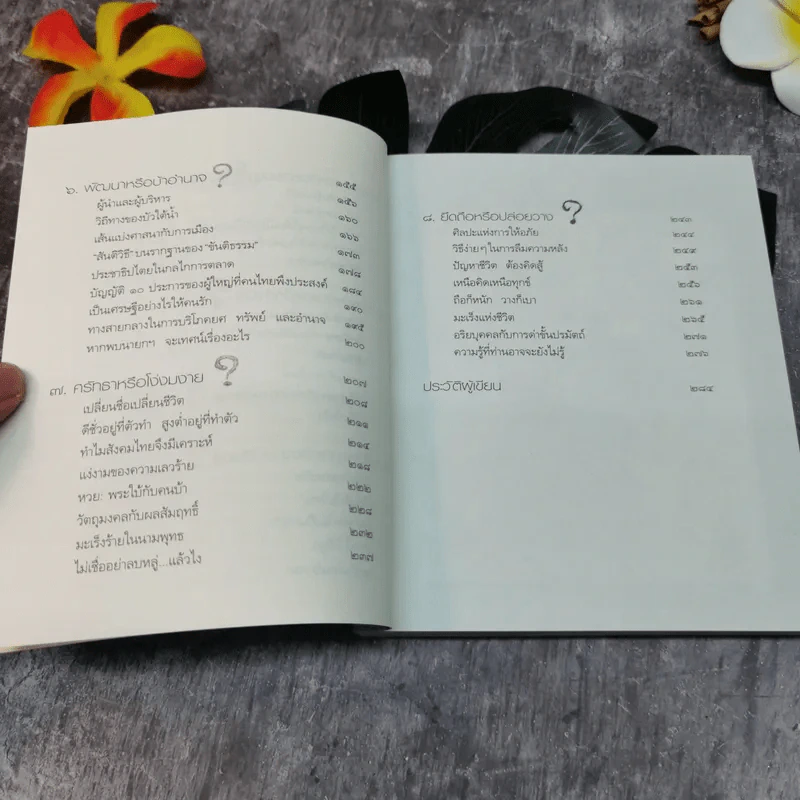 ๖. พัฒนาหรือบ้าอำนาจ ? ๑๕๕
ผู้นำและผู้บริหาร ๑๕๖
วิถีทางของบัวใต้น้ำ ๑๖๐
เส้นแบ่งศาสนากับการเมือง ๑๖๖
"สันติวิธี" บนรากฐานของ "ขันติธรรม" ๑๗๓
ประชาธิปไตยในกลไกการตลาด ๑๗๘
บัญญัติ ๑๐ ประการของผู้ใหญ่ที่คนไทยพึงประสงค์ ๑๘๔
เป็นเศรษฐีอย่างไรให้คนรัก ๑๙๐
ทางสายกลางในการบริโภคยศ ทรัพย์ และอำนาจ ๑๙๕
หากพบนายกฯ จะเทศน์เรื่องอะไร ๒๐๐
๗. ศรัทธาหรือโง่งมงาย ? ๒๐๗
เปลี่ยนชื่อเปลี่ยนชีวิต ๒๐๘
ดีชั่วอยู่ที่ตัวทำ สูงต่ำอยู่ที่ทำตัว ๒๑๑
ทำไมสังคมไทยจึงมีเคราะห์ ๒๑๔
แง่งามของความเลวร้าย ๒๑๘
หวย: พระใบ้กับคนบ้า ๒๒๒
วัตถุมงคลกับผลสัมฤทธิ์ ๒๒๘
มะเร็งร้ายในนามพุทธ ๒๓๒
ไม่เชื่ออย่าลบหลู่...แล้วไง ๒๓๗
๘. ยึดถือหรือปล่อยวาง ? ๒๔๓
ศิลปะแห่งการให้อภัย ๒๔๔
วิธีง่ายๆ ในการลืมความหลัง ๒๔๙
ปัญหาชีวิต ต้องคิดสู้ ๒๕๓
เหนือคิดเหนือทุกข์ ๒๕๖
ถือก็หนัก วางก็เบา ๒๖๑
มะเร็งแห่งชีวิต ๒๖๕
อริยบุคคลกับการด่าชั้นปรมัตถ์ ๒๗๑
ความรู้ที่ท่านอาจจะยังไม่รู้ ๒๗๖
ประวัติผู้เขียน ๒๘๔